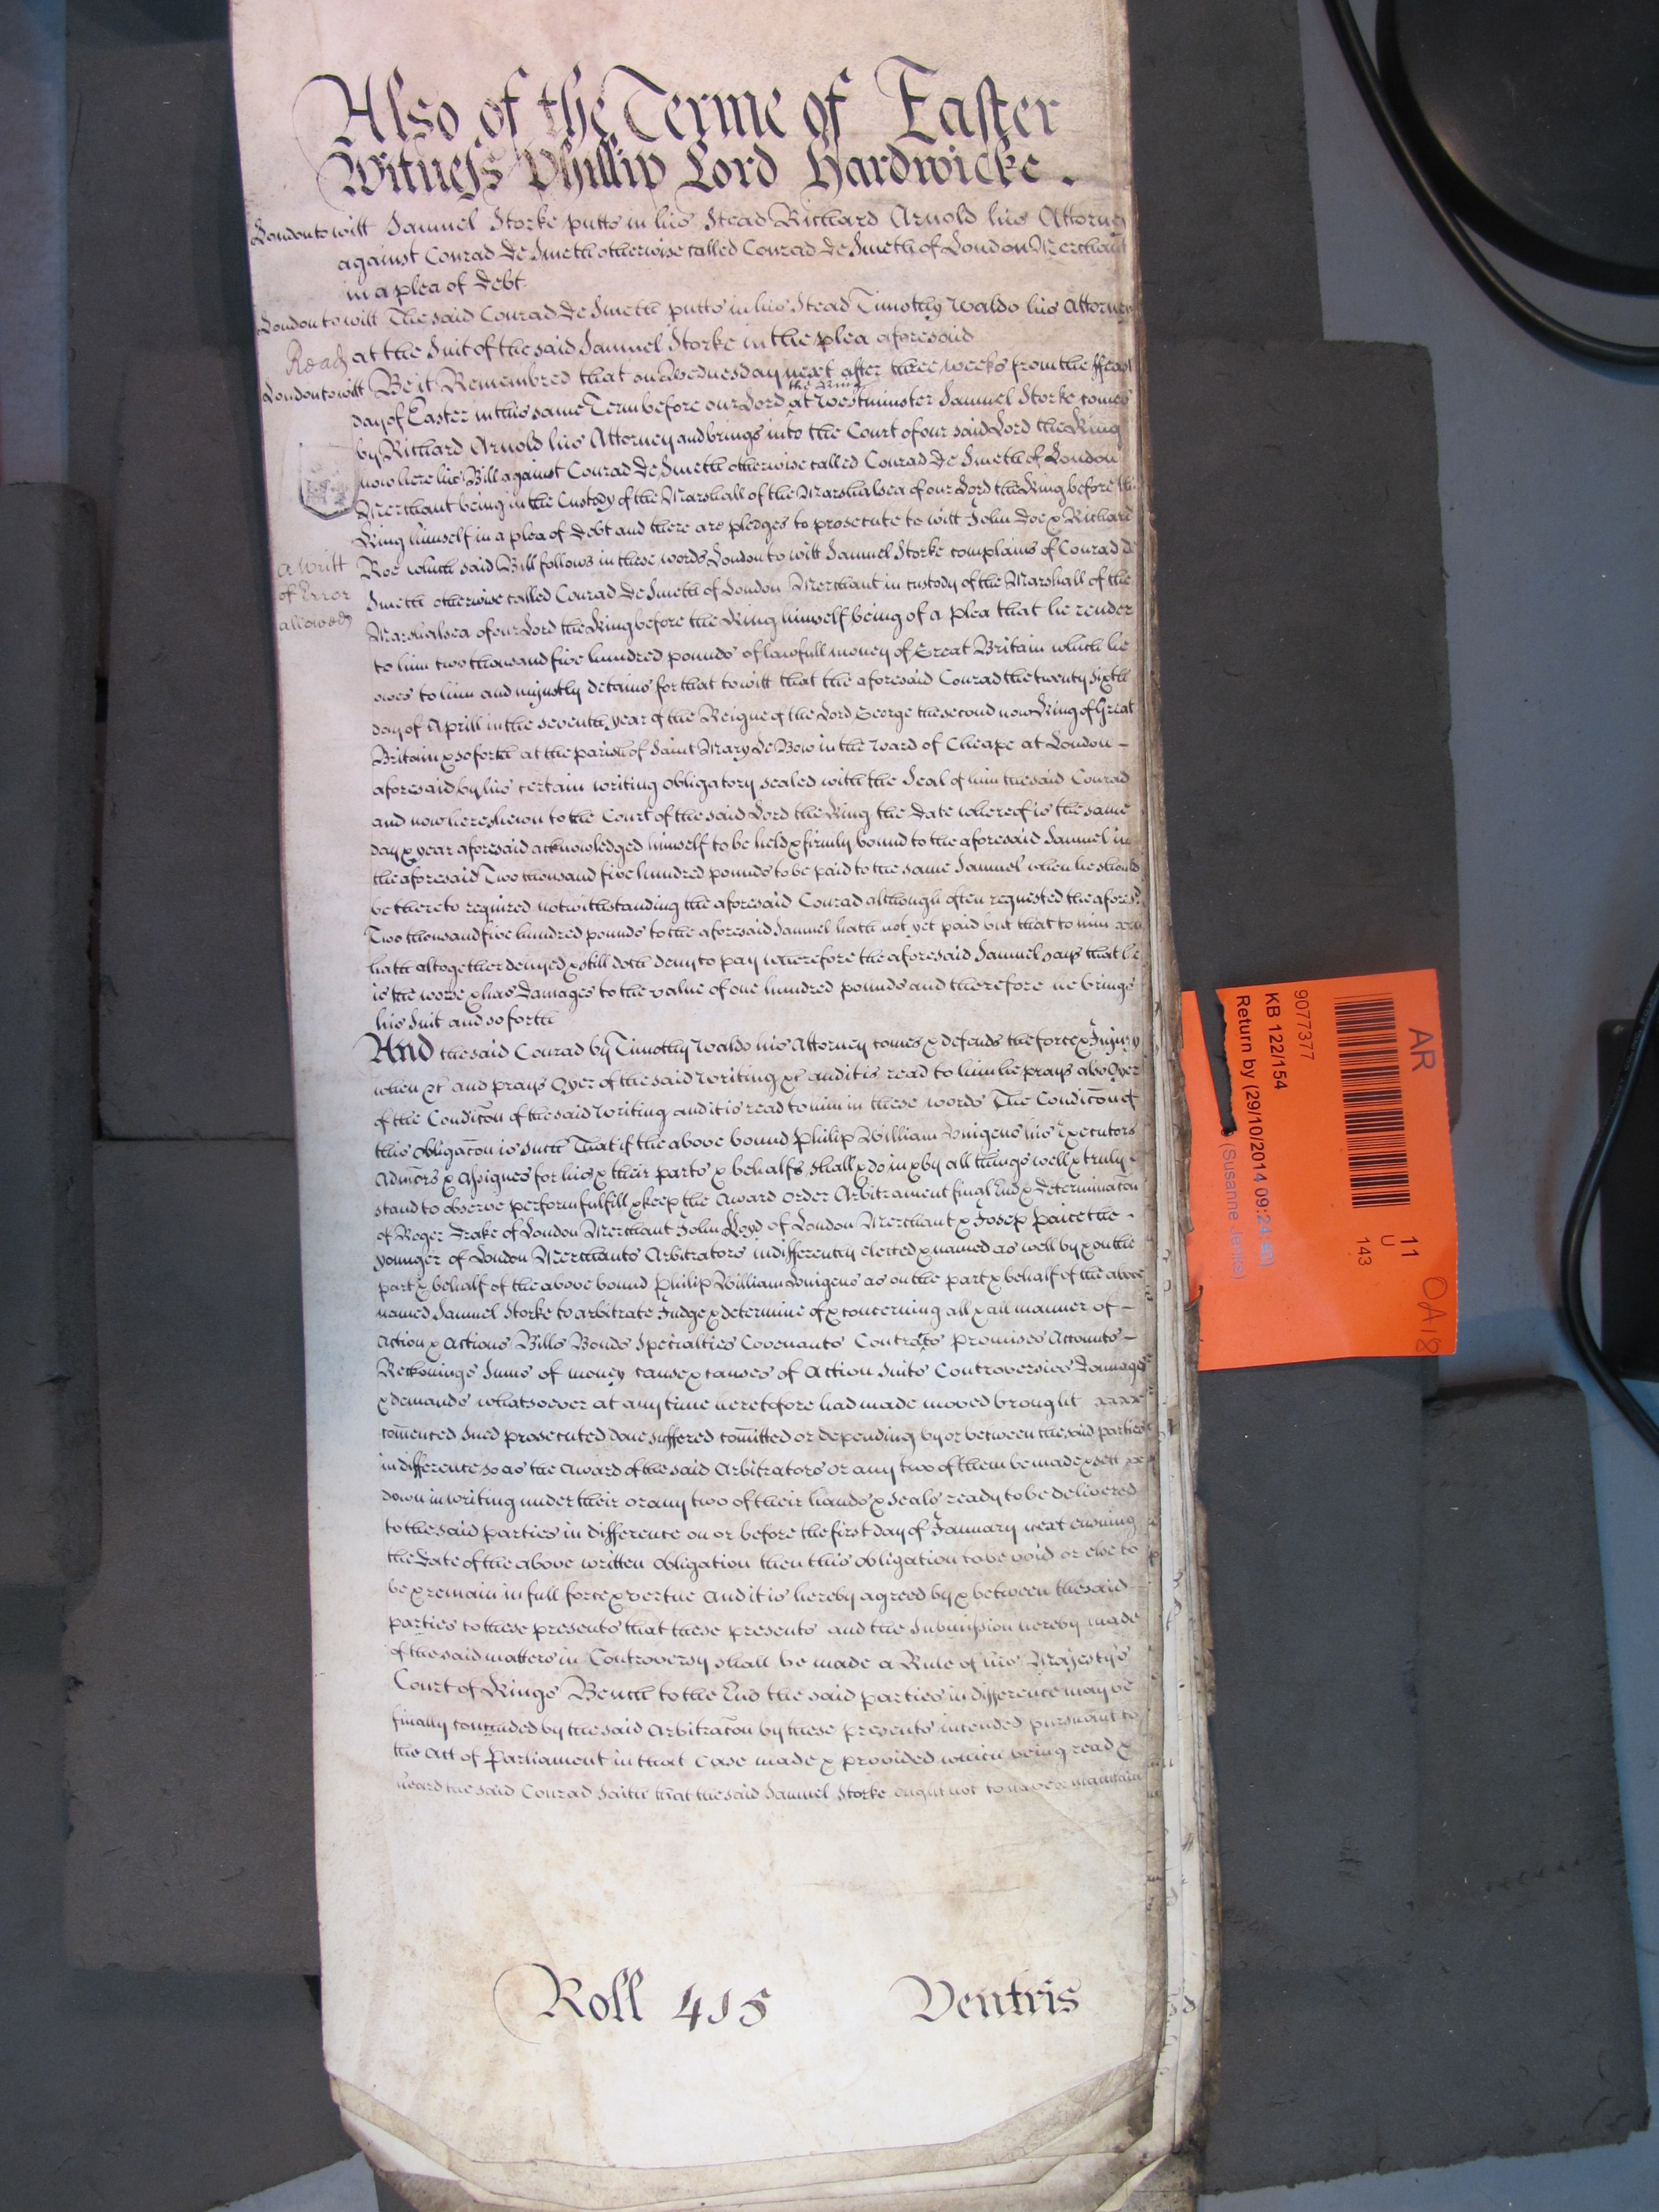 Also of the Terme of Easter
Witness Phillip Lord Hardwicke.
London to witt Samuel Storke putts in his Stead Richard Arnold his Attorney
against Conrad De Smeth otherwise called Conrad De Smeth of London Merchant
in a plea of Debt
London to witt The said Conrad De Smeth putts in his Stead Timothy Waldo his Attorney
at the Suit of the said Samuel Storke in the plea aforesaid
London to witt Be it Remembred that on Wednesday next after three weeks from the ffeast
day of Easter in this same Term before our Lord the King at Westminster Samuel Storke comes
by Richard Arnold his Attorney and brings into the Court of our said Lord the King
now here his Bill against Conrad De Smeth otherwise called Conrad De Smeth of London
Merchant being in the Custody of the Marshall of the Marshalsea of our Lord the King before the
King himself in a plea of Debt and there are pledges to prosecute to witt John Doe & Richard
a Writt
of Error
allowed
Roe which said Bill follows in these words London to witt Samuel Storke complains of Conrad De
Smeth otherwise called Conrad De Smeth of London Merchant in custody of the Marshall of the
Marshalsea of our Lord the King before the King himself being of a plea that he render
to him two thousand five hundred pounds of lawfull money of Great Britain which he
owes to him and unjustly detains for that to witt that the aforesaid Conrad the twenty sixth
day of Aprill in the seventh year of the Reigne of the Lord George the second now King of Great
Britain & so forth at the parish of Saint Mary Le Bow in the Ward of Cheape at London
aforesaid by his certain writing obligatory sealed with the Seal of him the said Conrad
and now here shewn to the Court of the said Lord the King the Date whereof is the same
day & year aforesaid acknowledged himself to be held & firmly bound to the aforesaid Samuel in
the aforesaid Two thousand five hundred pounds to be paid to the same Samuel when he should
be thereto required notwithstanding the aforesaid Conrad although often requested the afores.d
Two thousand five hundred pounds to the aforesaid Samuel hath not yet paid but that to him
hath altogether denyed & still doth deny to pay wherefore the aforesaid Samuel says that he
is the worse & has Damages to the value of one hundred pounds and therefore he brings
his Suit and so forth
And the said Conrad by Timothy Waldo his Attorney comes & defends the force & Injury
when &c and prays Oyer of the said Writing &c and it is read to him he prays also Oyer
of the Condicon of the said Writing and it is read to him in these words The Condicon of
this Obligacon is Such That if the above bound Philip William his Executors
Admors & Assignes for his & their parts & behalfs shall & do in & by all things well & truly
stand to observe perform fulfill & keep the Award order Arbitrament final End & Determinacon
of Roger Drake of London Merchant John Lloyd of London Merchant & Josep Paice the
younger of London Merchants Arbitrators indifferently elected & named as well by & on the
part & behalf of the above bound Philip William as on the part & behalf of the above
named Samuel Storke to arbitrate Judge & determine of & concerning all & all manner of
Action & Actions Bills Bonds Specialties Covenants Contracts promises Accounts
Reckonings Sums of money cause & causes of Action Suits Controversies Damages
& demands whatsoever at any time heretofore had made moved brought
comenced Sued prosecuted done suffered comitted or depending by or between the said parties
in difference so as the Award of the said Arbitrators or any two of them be made & sett
down in Writing under their or any two of their hands & Seals ready to be delivered
to the said parties in difference on or before the first day of January next ensuing
the Date of the above written Obligation then this obligation to be void or else to
be & remain in full force & vertue And it is hereby agreed by & between the said
parties to these presents that these presents and the Submission hereby made
of the said matters in Controversy shall be made a Rule of his Majesty's
Court of Kings Bench to the End the said parties in difference may be
finally concluded by the said Arbitracon by these presents intended pursuant to
the Act of Parliament in that Case made & provided which being read &
heard the said Conrad Saith that the said Samuel Storke ought not to have & maintain
Roll 415 Ventris
AR
11
U
143
9077377
KB 122/154
Return by (29/10/2014 09:24:40)
OA18